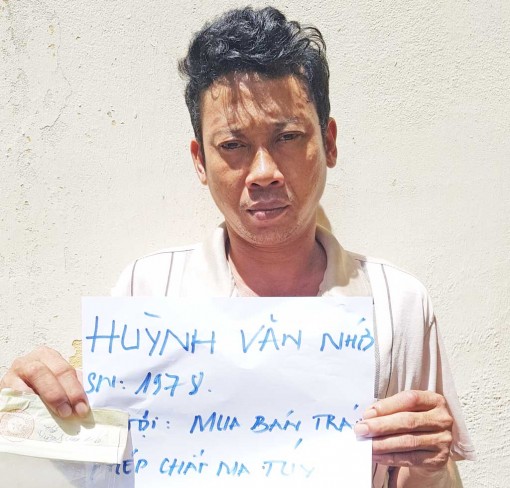 HUỲNH VĂN NHỎ
SN: 1978.
TỘI: MUA BÁN TRÁ
PHÉP CHẤT MA TÚY